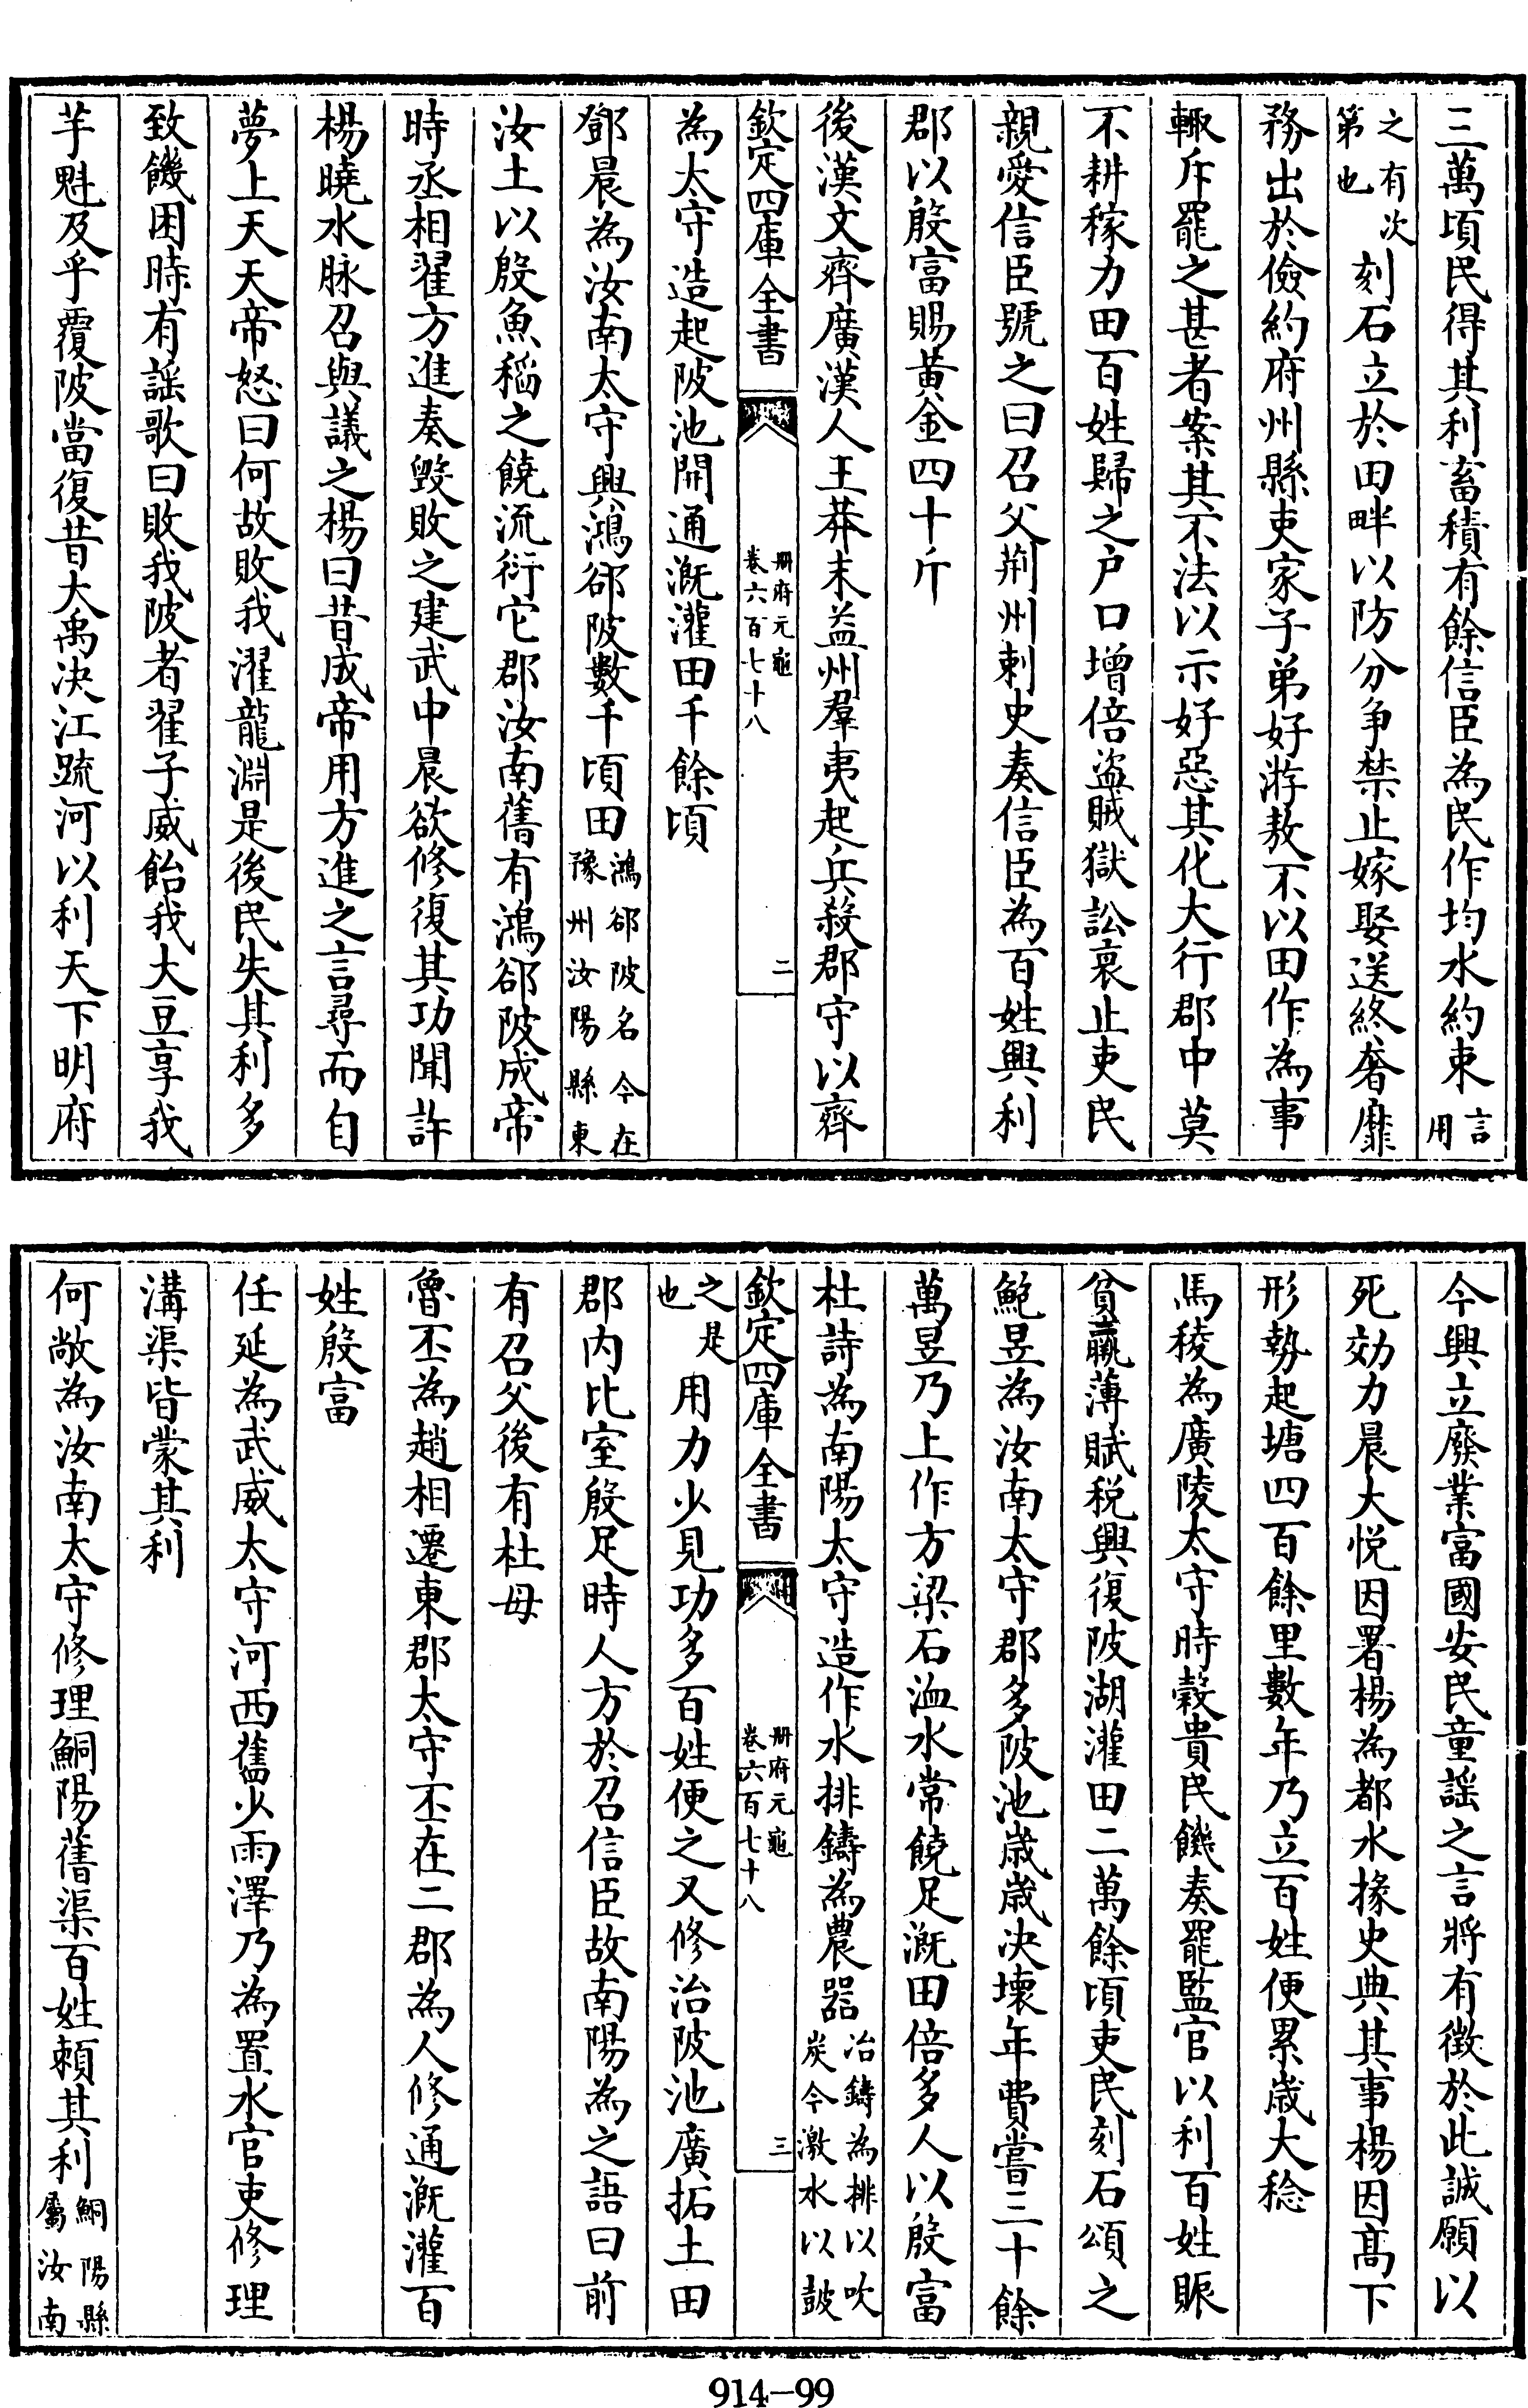 三萬頃民得其利畜積有餘信臣為民作均水約束言用
之有次第也刻石立於田畔以防分争禁止嫁娶送終奢靡
務出於儉約府州縣吏家子弟好游敖不以田作為事
輙斥罷之甚者案其不法以示好惡其化大行郡中莫
不耕稼力田百姓歸之户口增倍盗賊獄訟衰止吏民
親愛信臣號之曰召父荆州刺史奏信臣為百姓興利
郡以殷富賜黄金四十斤
後漢文齊廣漢人王莽末益州羣夷起兵殺郡守以齊
欽定四庫全書 冊府元龜卷六百七十八 二
為太守造起陂池開通溉灌田千餘頃
鄧晨為汝南太守興鴻郤陂數千頃田鴻郤陂名今在豫州汝陽縣東
汝土以殷魚稻之饒流衍它郡汝南舊有鴻郤陂成帝
時丞相翟方進奏毀敗之建武中晨欲修復其功聞許
楊曉水脉召與議之楊曰昔成帝用方進之言尋而自
夢上天天帝怒曰何故敗我濯龍淵是後民失其利多
致饑困時有謡歌曰敗我陂者翟子威飴我大豆享我
芋魁反乎覆陂當復昔大禹决江疏河以利天下明府
今興立廢業富國安民童謡之言將有徴於此誠願以
死効力晨大悅因署楊為都水掾史典其事楊因高下
形勢起塘四百餘里數年乃立百姓便累歲大稔
馬稜為廣陵太守時榖貴民饑奏罷監官以利百姓賑
貧羸薄賦税興復陂湖灌田二萬餘頃吏民刻石頌之
鮑昱為汝南太守郡多陂池歲歲决壞年費嘗三十餘
萬昱乃上作方梁石洫水常饒足溉田倍多人以殷富
杜詩為南陽太守造作水排鑄為農器冶鑄為排以吹炭今激水以鼓
欽定四庫全書 冊府元龜卷六百七十八 三
之是也用力少見功多百姓便之又修治陂池廣拓土田
郡内比室殷足時人方於召信臣故南陽為之語曰前
有召父後有杜母
魯丕為趙相遷東郡太守丕在二郡為人修通溉灌百
姓殷富
任延為武威太守河西舊少雨澤乃為置水官吏修理
溝渠皆蒙其利
何敞為汝南太守修理鮦陽舊渠百姓頼其利鮦陽縣屬汝南
914-99